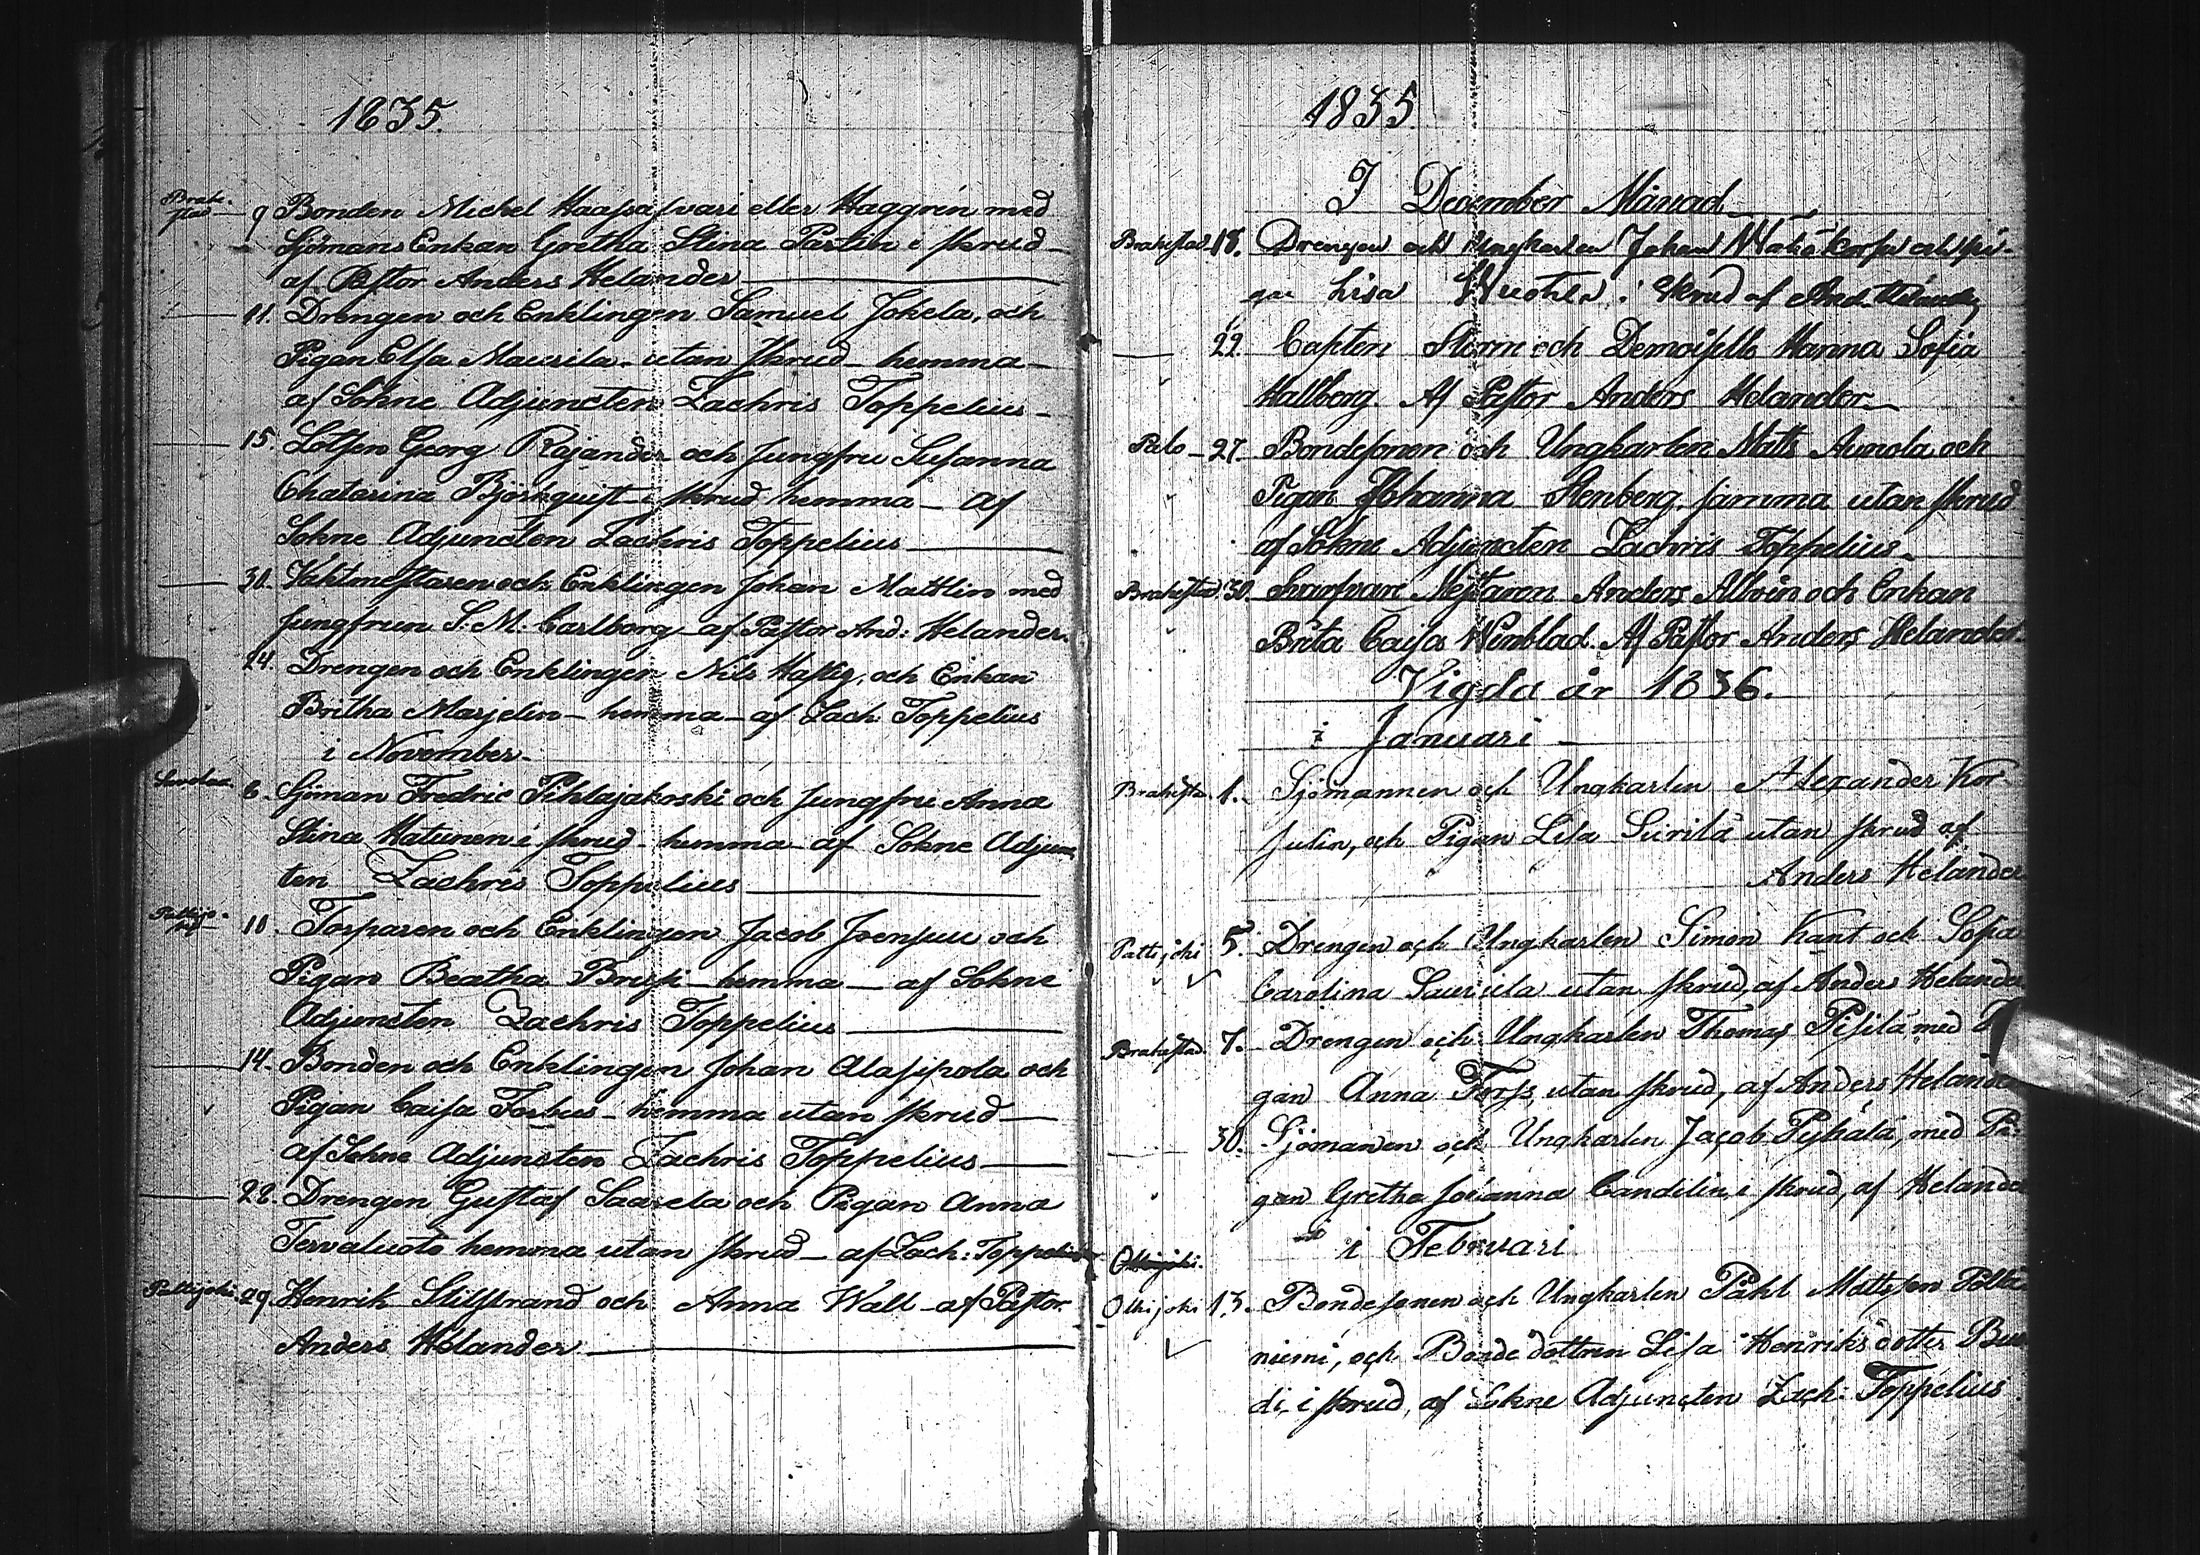 1835.
Brahe-
stad 9 Bonden Mickel Haapasvari eller Haggrén med
Sjömans Enkan Gretha Stina Partin i skrud
af Pastor Anders Helander
11. Drengen och Enklingen Samuel Jokela, och
Pigan Elsa Maurila utan skrud hemma
af Sokne Adjuncten Zachris Toppelius
15. Lotsen Georg Rajander och Jungfru Susanna
Chatarina Björkquist i skrud hemma – af
Sokne Adjuncten Zachris Toppelius
30. Vaktmestaren och Enklingen Johan Mathlin med
Jungfrun S. M. Carlborg af Pastor And: Helander.
24. Drengen och Enklingen Nils Hastig, och Enkan
Britha Marjelin – hemma – af Zach: Toppelius
i November.
6. Sjöman Fredric Pihlajakoski och Jungfru Anna
Stina Hatunen i skrud hemma af Sokne Adjunc
ten Zachris Toppelius
Pattijo-
ki 10. Torparen och Enklingen Jacob Isenjuu och
Pigan Beatha – hemma – af Sokne
Adjuncten Zachris Toppelius
14. Bonden och Enklingen Johan Alasipola och
Pigan Caisa Forbus – hemma utan skrud
af Sokne Adjuncten Zachris Toppelius
22. Drengen Gustaf Saarela och Pigan Anna
Tervaluoto hemma utan skrud – af Zach: Toppelius
Pattijoki. 29 Henrik Stilstrand och Anna Wall – af Pastor
Anders Helander
1835.
I December Månad
Brahestad 18. Drengen och Ungkarlen Johan och pi-
gan Lisa Wuohla i skrud af And. Helander
22. Capten Storm och Demoiselle Hanna Sofia
Hallberg. Af Pastor Anders Helander
Palo 27. Bondesonen och Ungkarlen Matts Aunola och
Pigan Johanna Stenberg hämma utan skrud
af Sokne Adjuncten Zachris Toppelius.
Brahestad 30. Svarfvare Mestaren Anders Albin och Enkan
Brita Caisa Winblad. Af Pastor Anders Helander
Vigda år 1836.
i Januari
Brahesta. 1. Sjömannen och Ungkarlen Alexander Kor-
julin, och Pigan Lisa Siirilä utan skrud af
Anders Helander
Pattijoki 5. Drengen och Ungkarlen Simon Kant och Sofia
Carolina Sauriela utan skrud, af Anders Helander
Brahestad. 7. Drengen och Ungkarlen Thomas Pisilä med
gan Anna Forss utan skrud, af Anders Helander
30. Sjömanen och Ungkarlen Jacob Pyhälä, med Pi-
gan Gretha Johanna Candelin, i skrud, af Helander
i Februari
Olkijoki.
Olkijoki 13. Bondesonen och Ungkarlen Påhl Mattsson
niemi, och Bondedottren Lisa Henriksdotter
di, i skrud, af Sokne Adjuncten Zach: Toppelius